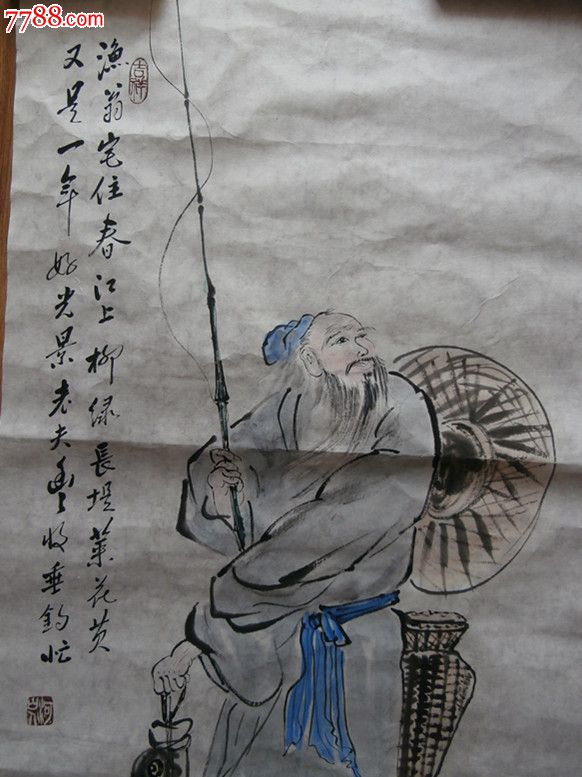 7788.com
漁翁宅住春江上柳绿長堤菜花黄
又是一年好光景老夫豐收垂釣忙
吉祥